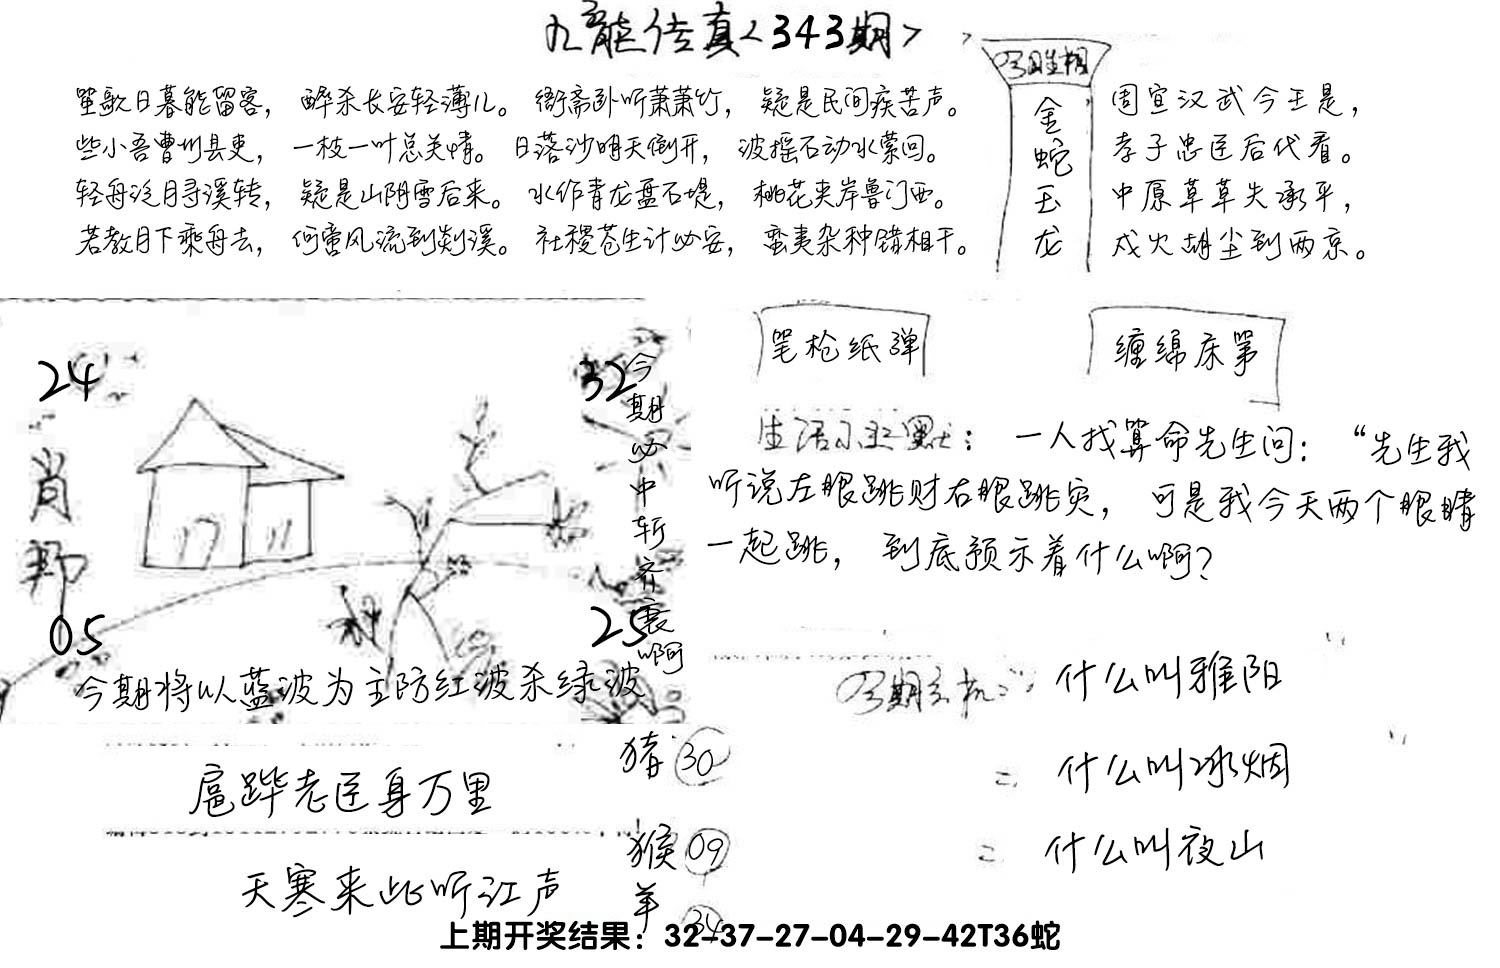 九龙传真<343期>
笙歌日暮能留客，醉杀长安轻薄儿。衙斋卧听萧萧竹，疑是民间疾苦声。
些小吾曹州县吏，一枝一叶总关情。日落沙明天倒开，波摇石动水萦回。
轻舟泛月寻溪转，疑是山阴雪后来。水作青龙盘石堤，桃花夹岸鲁门西。
若教月下乘舟去，何啻风流到剡溪。社稷苍生计必安，蛮夷杂种错相干。
今期生相
金蛇玉龙
周宣汉武今王是，
孝子忠臣后代看。
中原草草失承平，
戍火胡尘到两京。
24
32
肖
05
25
今期必中斩齐襄啊
今期将以蓝波为主防红波杀绿波
笔枪纸弹
缠绵床笫
生活小幽默：一人找算命先生问：“先生我
听说左眼跳财右眼跳灾，可是我今天两个眼睛
一起跳，到底预示着什么啊？
今期玄机：什么叫雅阳
什么叫冰烟
什么叫夜山
扈跸老臣身万里
天寒来此听江声
猪 30
猴 09
羊 34
上期开奖结果：32-37-27-04-29-42T36蛇